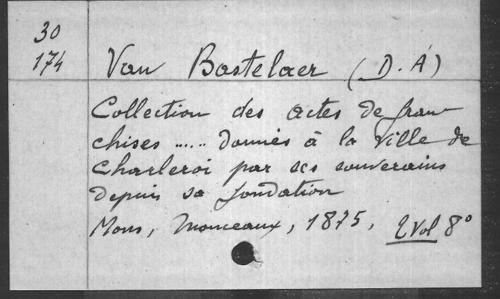 30
174
Van Bastelaer (D. A)
Collection des actes de fran
chises ..... donnés à la ville de
Charleroi par ses souverains
depuis sa fondation
Mons, Monceaux, 1875, 2 Vol 8°